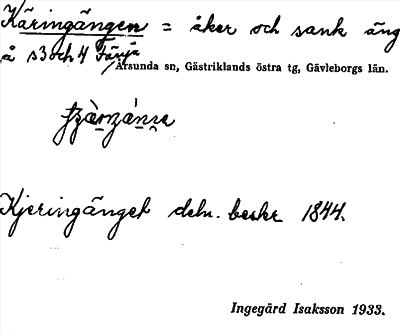 Käringängen = åker och sank äng
å s3och4 Färjä
Årsunda sn, Gästriklands östra tg, Gävleborgs län.
Kjeringänget deln. beskr 1844.
Ingegärd Isaksson 1933.